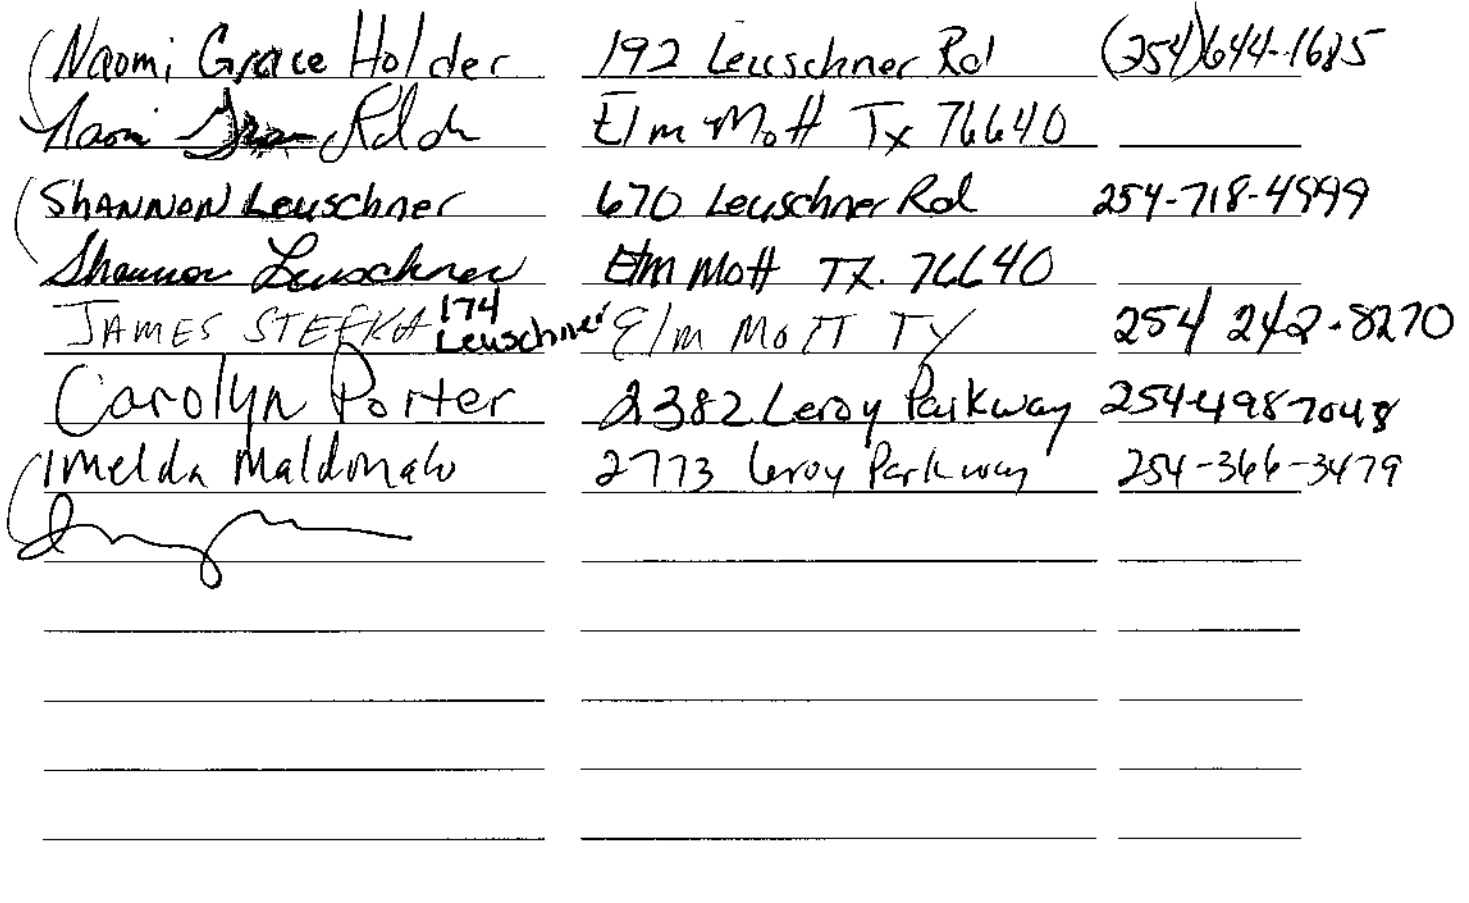 Naomi Grace Holder 192 Leuschner Rd (254)644-1685
Naomi Grace Elm Mott Tx 76640
SHANNON Leuschner 670 Leuschner Rd 254-718-4999
Shannon Leuschner Elm Mott TX. 76640
JAMES STEFKA 174 Leuschner Elm MOTT TX 254 242-8270
Carolyn Porter 2382 Leroy Parkway 254-498 7048
Imelda Maldonado 2773 Leroy Parkway 254-366-3479